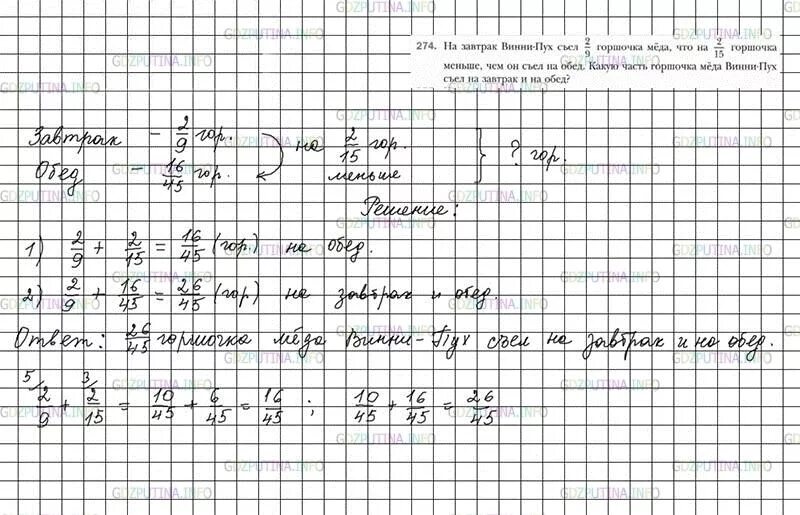 GDZPUTINA.INFO
274. На завтрак Винни-Пух съел 2/9 горшочка мёда, что на 2/15 горшочка
меньше, чем он съел на обед. Какую часть горшочка мёда Винни-Пух
съел на завтрак и на обед?
Завтрак – 2/9 гор. на 2/15 гор. } ? гор.
Обед – 16/45 гор. меньше
Решение:
1) 2/9 + 2/15 = 16/45 (гор.) на обед.
2) 2/9 + 16/45 = 26/45 (гор) на завтрак и обед.
Ответ: 26/45 горшочка мёда Винни-Пух съел на завтрак и на обед.
5/ 2/9 + 3/ 2/15 = 10/45 + 6/45 = 16/45 ; 10/45 + 16/45 = 26/45